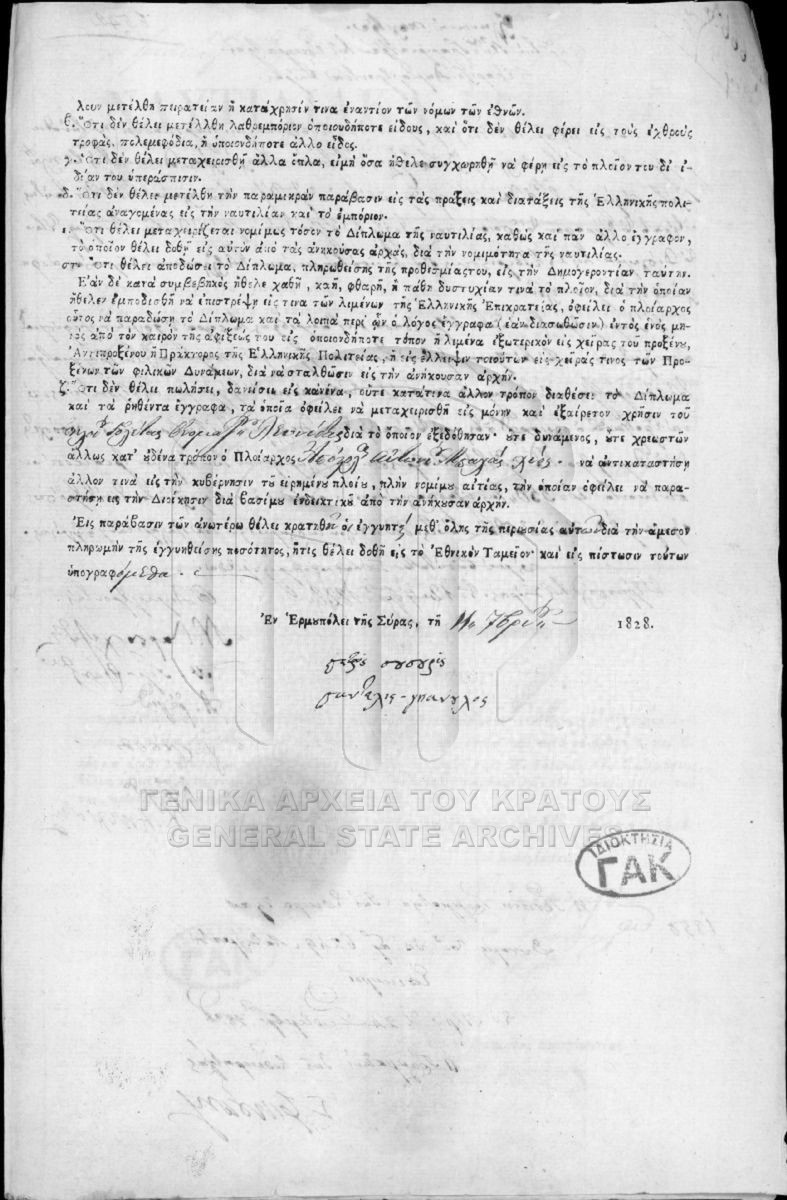 λουν μετέλθη πειρατείαν ἤ κατάχρησίν τινα ἐναντίον τῶν νόμων τῶν ἐθνῶν.
β. Ὅτι δὲν θέλει μετέλλθη λαθρεμπόριον ὁποιουδήποτε εἴδους, καὶ ὅτι δὲν θέλει φέρει εἰς τοὺς ἐχθροὺς
τροφάς, πολεμεφόδια, ἤ ὁποιονδήποτε ἄλλο εἶδος.
γ. Ὅτι δὲν θέλει μεταχειρισθῆ ἄλλα ὅπλα, εἰμὴ ὅσα ἤθελε συγχωρηθῆ νὰ φέρῃ εἰς τὸ πλοῖον του δι᾽ ἰ-
δίαν του ὑπεράσπισιν.
δ. Ὅτι δὲν θέλει μετέλθη τὴν παραμικρὰν παράβασιν εἰς τὰς πράξεις καὶ διατάξεις τῆς Ἑλληνικῆς πολι-
τείας ἀναγομένας εἰς τὴν ναυτιλίαν καὶ τὸ ἐμπόριον.
ε. Ὅτι θέλει μεταχειρίζεται νομίμως τόσον τὸ Δίπλωμα τῆς ναυτιλίας, καθὼς καὶ πᾶν ἄλλο ἔγγραφον,
τὸ ὁποῖον θέλει δοθῆ εἰς αὐτὸν ἀπὸ τὰς ἀνηκούσας ἀρχάς, διὰ τὴν νομιμότητα τῆς ναυτιλίας.
στ. Ὅτι θέλει ἀποδώσει τὸ Δίπλωμα, πληρωθείσης τῆς προθεσμίας του, εἰς τὴν Δημογεροντίαν ταύτην.
Ἐὰν δὲ κατὰ συμβεβηκὸς ἤθελε χαθῆ, καῆ, φθαρῆ, ἤ πάθῃ δυστυχίαν τινὰ τὸ πλοῖον, διὰ τὴν ὁποίαν
ἤθελεν ἐμποδισθῆ νὰ ἐπιστρέψῃ εἰς τινα τῶν λιμένων τῆς Ἑλληνικῆς Ἐπικρατείας, ὀφείλει ὁ πλοίαρχος
οὗτος νὰ παραδώσῃ τὸ Δίπλωμα καὶ τὰ λοιπὰ περὶ ὧν ὁ λόγος ἔγγραφα (ἐὰν διασωθῶσιν) ἐντὸς ἑνὸς μη-
νὸς ἀπὸ τὸν καιρὸν τῆς ἀφίξεώς του εἰς ὁποιονδήποτε τόπον ἤ λιμένα ἐξωτερικὸν εἰς χεῖρας τοῦ προξένου,
Ἀντιπροξένου ἤ Πράκτορος τῆς Ἑλληνικῆς Πολιτείας, ἤ εἰς ἔλλειψιν τοιούτων εἰς χεῖράς τινος τῶν Προ-
ξένων τῶν φιλικῶν Δυνάμεων, διὰ νὰ σταλθῶσιν εἰς τὴν ἀνήκουσαν ἀρχήν.
ζ. Ὅτι δὲν θέλει πωλήσει, δανείσει εἰς κανένα, οὔτε κατά τινα ἄλλον τρόπον διαθέσει τὸ Δίπλωμα
καὶ τὰ ῥηθέντα ἔγγραφα, τὰ ὁποῖα ὀφείλει νὰ μεταχειρισθῆ εἰς μόνην καὶ ἐξαίρετον χρῆσιν τοῦ
Γολέτας Λεωνίδας διὰ τὸ ὁποῖον ἐξεδόθησαν· ὔτε δυνάμενος, ὔτε χρεωστῶν
ἄλλως κατ᾽ ὐδένα τρόπον ὁ Πλοίαρχος νὰ ἀντικαταστήσῃ
ἄλλον τινὰ εἰς τὴν κυβέρνησιν τῦ εἰρημένυ πλοίυ, πλὴν νομίμυ αἰτίας, τὴν ὁποίαν ὀφείλει νὰ παρα-
στήσῃ εἰς τὴν Διοίκησιν διὰ βασίμυ ἐνδεικτικῦ ἀπὸ τὴν ἀνήκυσαν ἀρχήν.
Εἰς παράβασιν τῶν ἀνωτέρω θέλει κρατηθῆ οἱ ἐγγυηταὶ μεθ᾽ ὅλης τῆς περιυσίας αὐτῶν διὰ τὴν ἄμεσον
πληρωμὴν τῆς ἐγγυηθείσης ποσότητος, ἥτις θέλει δοθῆ εἰς τὸ Ἐθνικὸν Ταμεῖον· καὶ εἰς πίστωσιν τούτων
ὑπογραφόμεθα.
Ἐν Ἑρμυπόλει τῆς Σύρας, τῇ 11 7βρίυ 1828.
ΓΕΝΙΚΑ ΑΡΧΕΙΑ ΤΟΥ ΚΡΑΤΟΥΣ
GENERAL STATE ARCHIVES
ΙΔΙΟΚΤΗΣΙΑ
ΓΑΚ